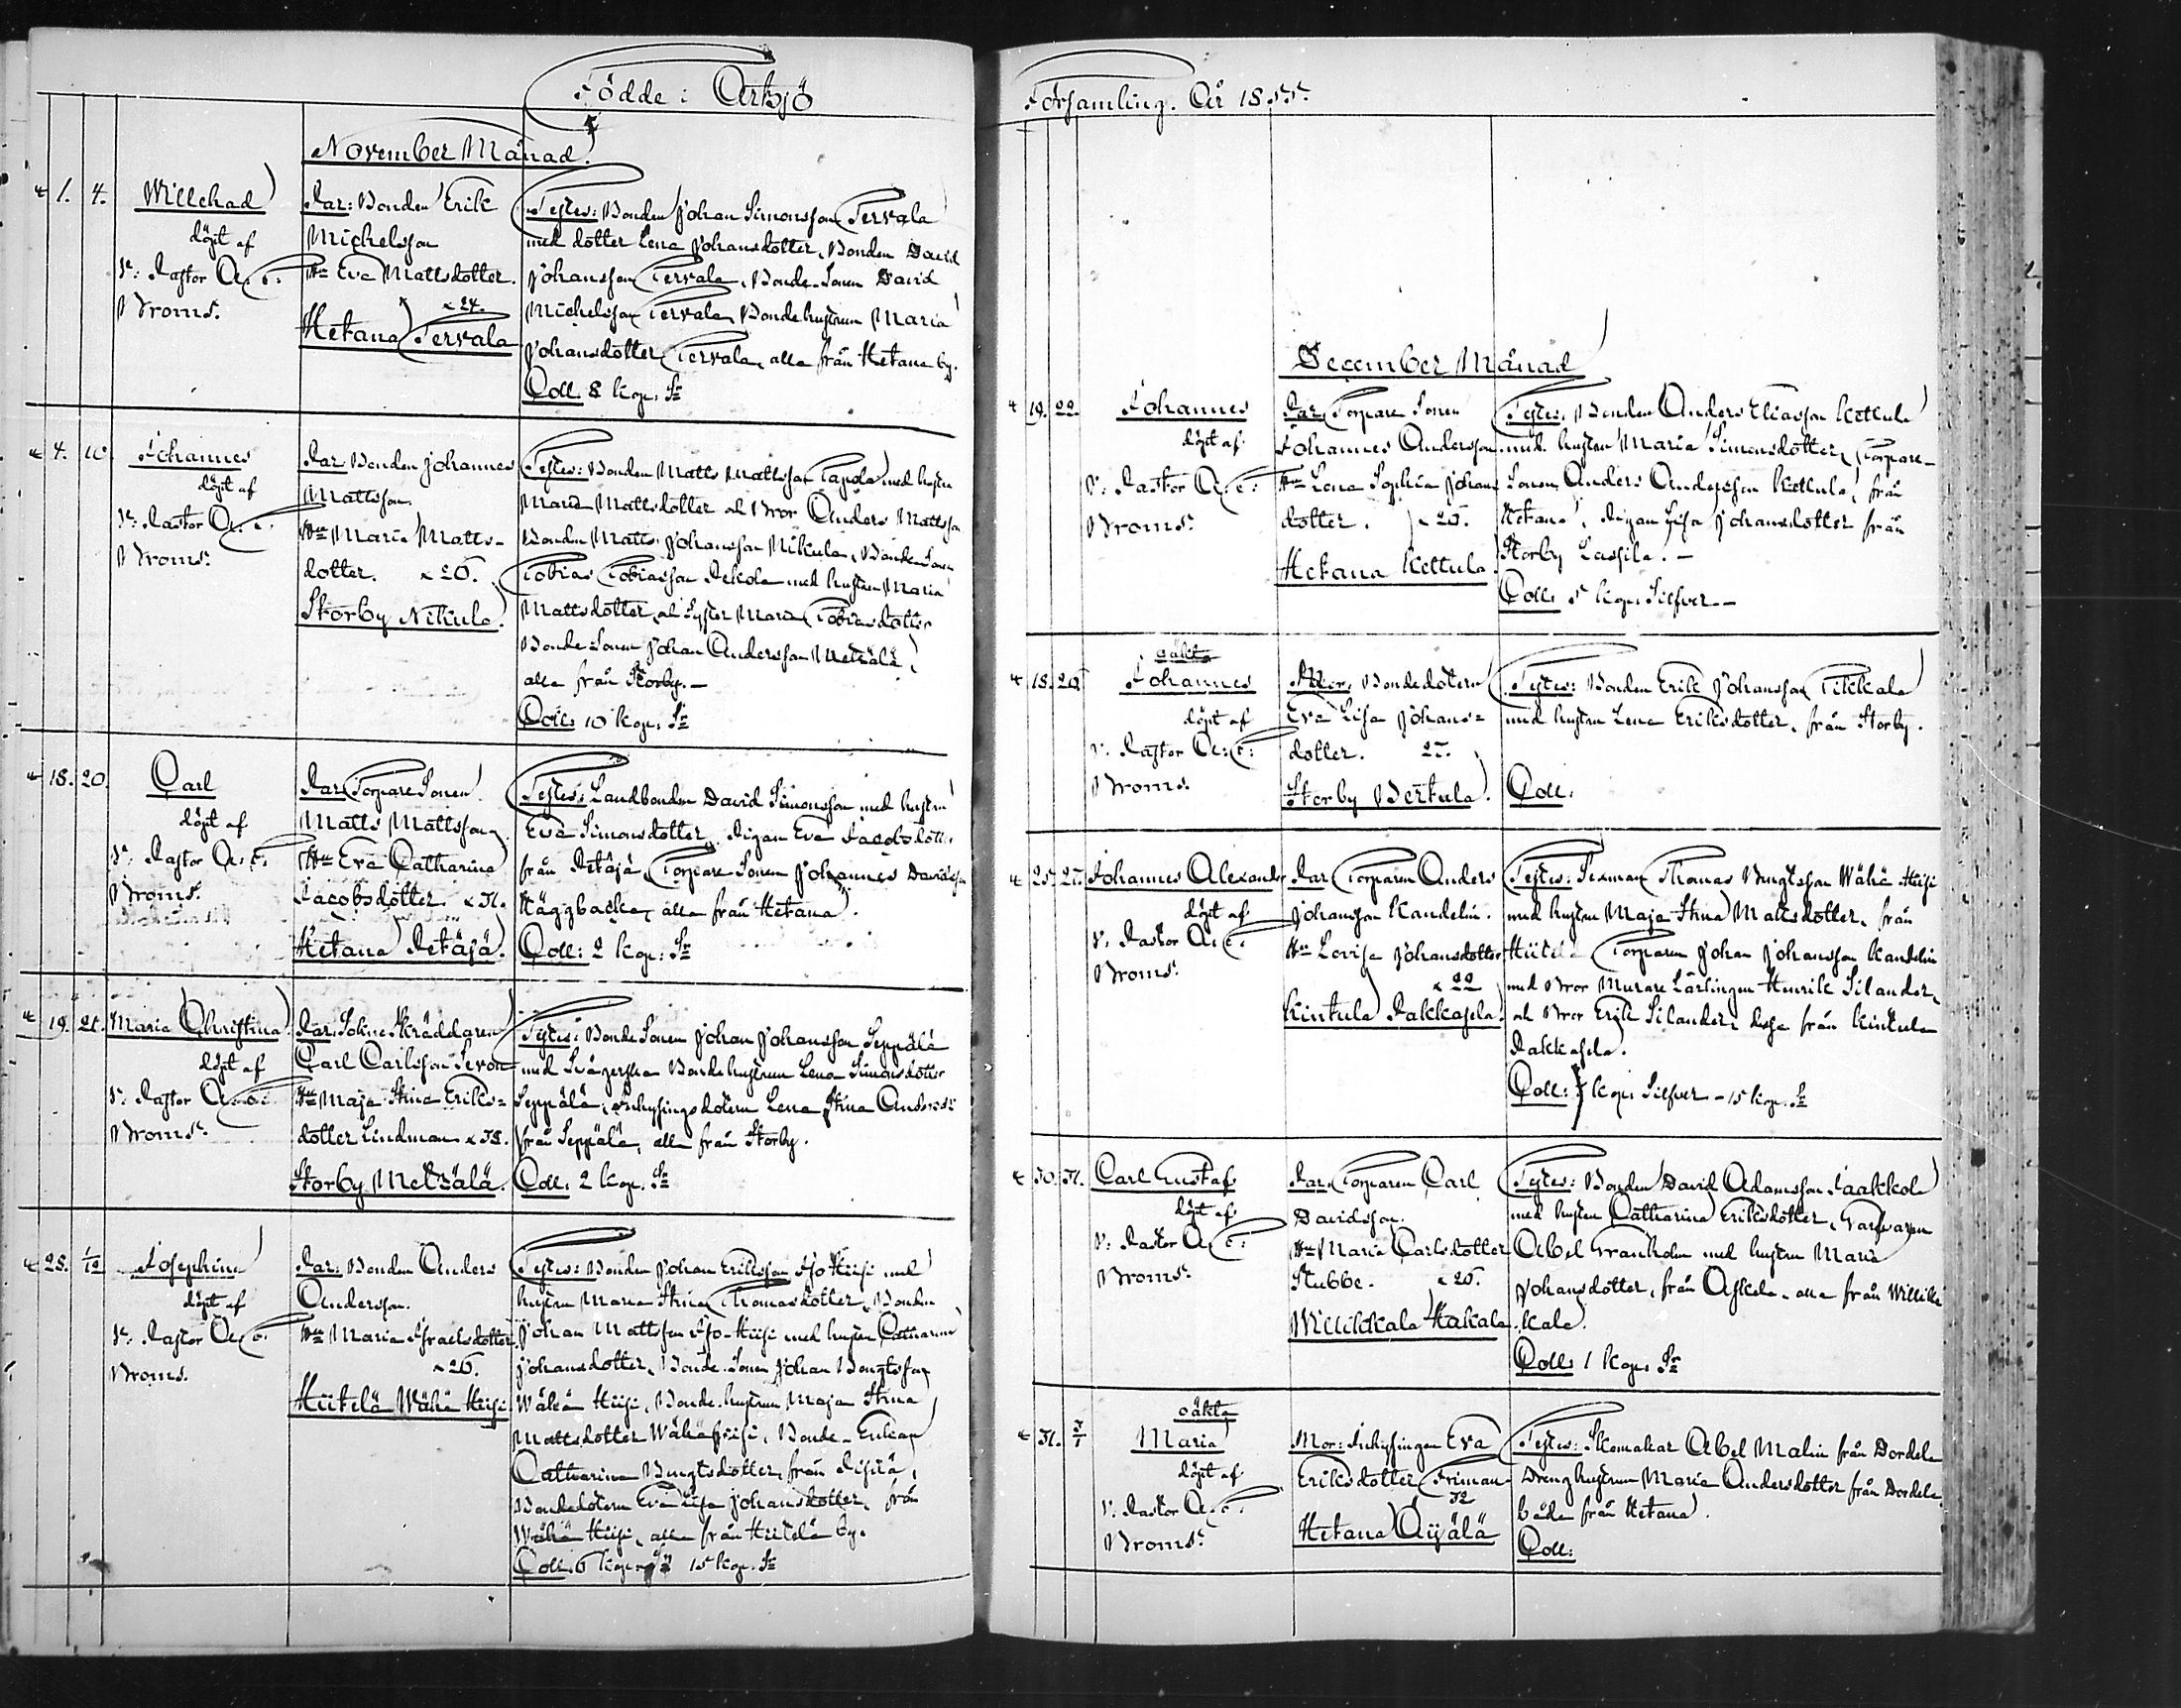 Födde i Artsjö
November Månad.
1. 4. Willehad
döpt af
v: Pastor A. E.
Broms.
Par: Bonden Erik
Michelsson
Hu Eva Mattsdotter.
× 24.
Hetana Tervala
Testes: Bonden Johan Simonsson Tervala
med dotter Lena Johansdotter, Bonden David
Johansson Tervala, Bonde-Sonen David
Michelsson Tervala, Bondehustrun Maria
Johansdotter Tervala, alla från Hetana by.
Coll. 8 kop. Sr
4. 10. Johannes
döpt af
v: Pastor A. E.
Broms.
Par: Bonden Johannes
Mattsson.
Hu Maria Matts-
dotter. × 26.
Storby Nikula.
Testes: Bonden Matts Mattsson Tapola med hustru
Maria Mattsdotter och Bror Anders Mattsson
Bonden Matts Johansson Nikula, Bonde Sonen
Tobias Tobiasson Pekola med hustrun Maria
Mattsdotter och Syster Maria Tobiasdotter
Bonde-Sonen Johan Andersson Metsälä,
alla från Storby.—
Coll: 10 kop. Sr
18. 20. Carl
döpt af
v: Pastor A. E.
Broms.
Par: Torpare Sonen
Matts Mattsson
Hu Eva Catharina
Jacobsdotter. × 31.
Hetana Petäjä.
Testes: Landbonden David Simonsson med hustru
Eva Simonsdotter, Pigan Eva Jacobsdotter
från Petäjä, Torpare Sonen Johannes Davidsson
Häggbacka, alla från Hetana.
Coll: 2 kop: Sr
19. 21. Maria Christina
döpt af
v: Pastor A. E.
Broms.
Par: Sockne Skräddaren
Carl Carlsson Sevon
Hu Maja Stina Eriks-
dotter Lindman × 38.
Storby Metsälä.
Testes: Bonde Sonen Johan Johansson Seppälä
med Svägerskan Bondehustrun Lena Simonsdotter
Seppälä, Inhysingsdotern Lena Stina Andersd:
från Seppälä, alla från Storby.
Coll: 2 kop. Sr
28. 1/12 Josephina
döpt af
v: Pastor A. E.
Broms.
Par: Bonden Anders
Andersson.
Hu Maria Israelsdotter
× 26.
Hiitelä Wähä Hiisi
Testes: Bonden Johan Eriksson Iso Hiisi med
hustru Maria Stina Thomasdotter, Bonden
Johan Mattsson Iso-Hiisi med hustru Catharina
Johansdotter, Bonde-Sonen Johan Bengtsson
Wähä Hiisi, Bonde-hustrun Maja Stina
Mattsdotter Wähä Hiisi, Bonde-Enkan
Catharina Bengtsdotter från
Bondedotern Eva Lisa Johansdotter från
Wähä Hiisi, alla från Hiitelä by.
Coll. 6 kop. 15 kop. Sr
Församling. År 1855.
December Månad
19. 22. Johannes
döpt af
v: Pastor A. E.
Broms.
Par: Torpare Sonen
Johannes Andersson
Hu Lena Sophia Johans
dotter. × 25.
Hetana Kettula.
Testes: Bonden Anders Eliasson Kettula
med hustru Maria Simonsdotter, Torpare-
Sonen Anders Andersson Kettula, från
Hetana, Pigan Lisa Johansdotter från
Storby Lassila.—
Coll: 5 kop. Silfver—
18. 26. oäkta
Johannes
döpt af
v: Pastor A. E.
Broms.
Mor: Bondedotern
Eva Lisa Johans-
dotter. 27.
Storby Bertula.
Testes: Bonden Erik Johansson Tikkala
med hustru Lena Eriksdotter, från Storby.
Coll:
25. 27. Johannes Alexander
döpt af
v: Pastor A. E.
Broms.
Par: Torparen Anders
Johansson Kandelin.
Hu Lovisa Johansdotter
× 22
Kinkula Pakkasela.
Testes: Sexman Thomas Bengtsson Wähä-Hiisi
med hustru Maja Stina Mattsdotter, från
Hiitelä Torparen Johan Johansson Kandelin
med Bror Murare Lärlingen Henrik Silander,
och Bror Erik Silander, dessa från Kinkula
Pakkasela.
Coll: kop. Silfver - 15 kop. Sr
30. 31. Carl Gustaf
döpt af
v: Pastor A. E.
Broms.
Par: Torparen Carl
Davidsson.
Hu Maria Carlsdotter
Stubbe. × 26.
Willikkala Hakala
Testes: Bonden David Adamsson Jaakkola
med hustru Catharina Eriksdotter, Garfvaren
Abel Granholm med hustru Maria
Johansdotter, från Askola, alla från Willik
kala.
Coll: 1 kop. Sr
31. 7/1 oäkta
Maria
döpt af
v: Pastor A. E.
Broms.
Mor: Inhysingen Eva
Eriksdotter Friman
32
Hetana Äijälä
Testes: Skomakar Abel Malin från Dordela
Drenghustrun Maria Andersdotter från Dordela
båda från Hetana.
Coll: